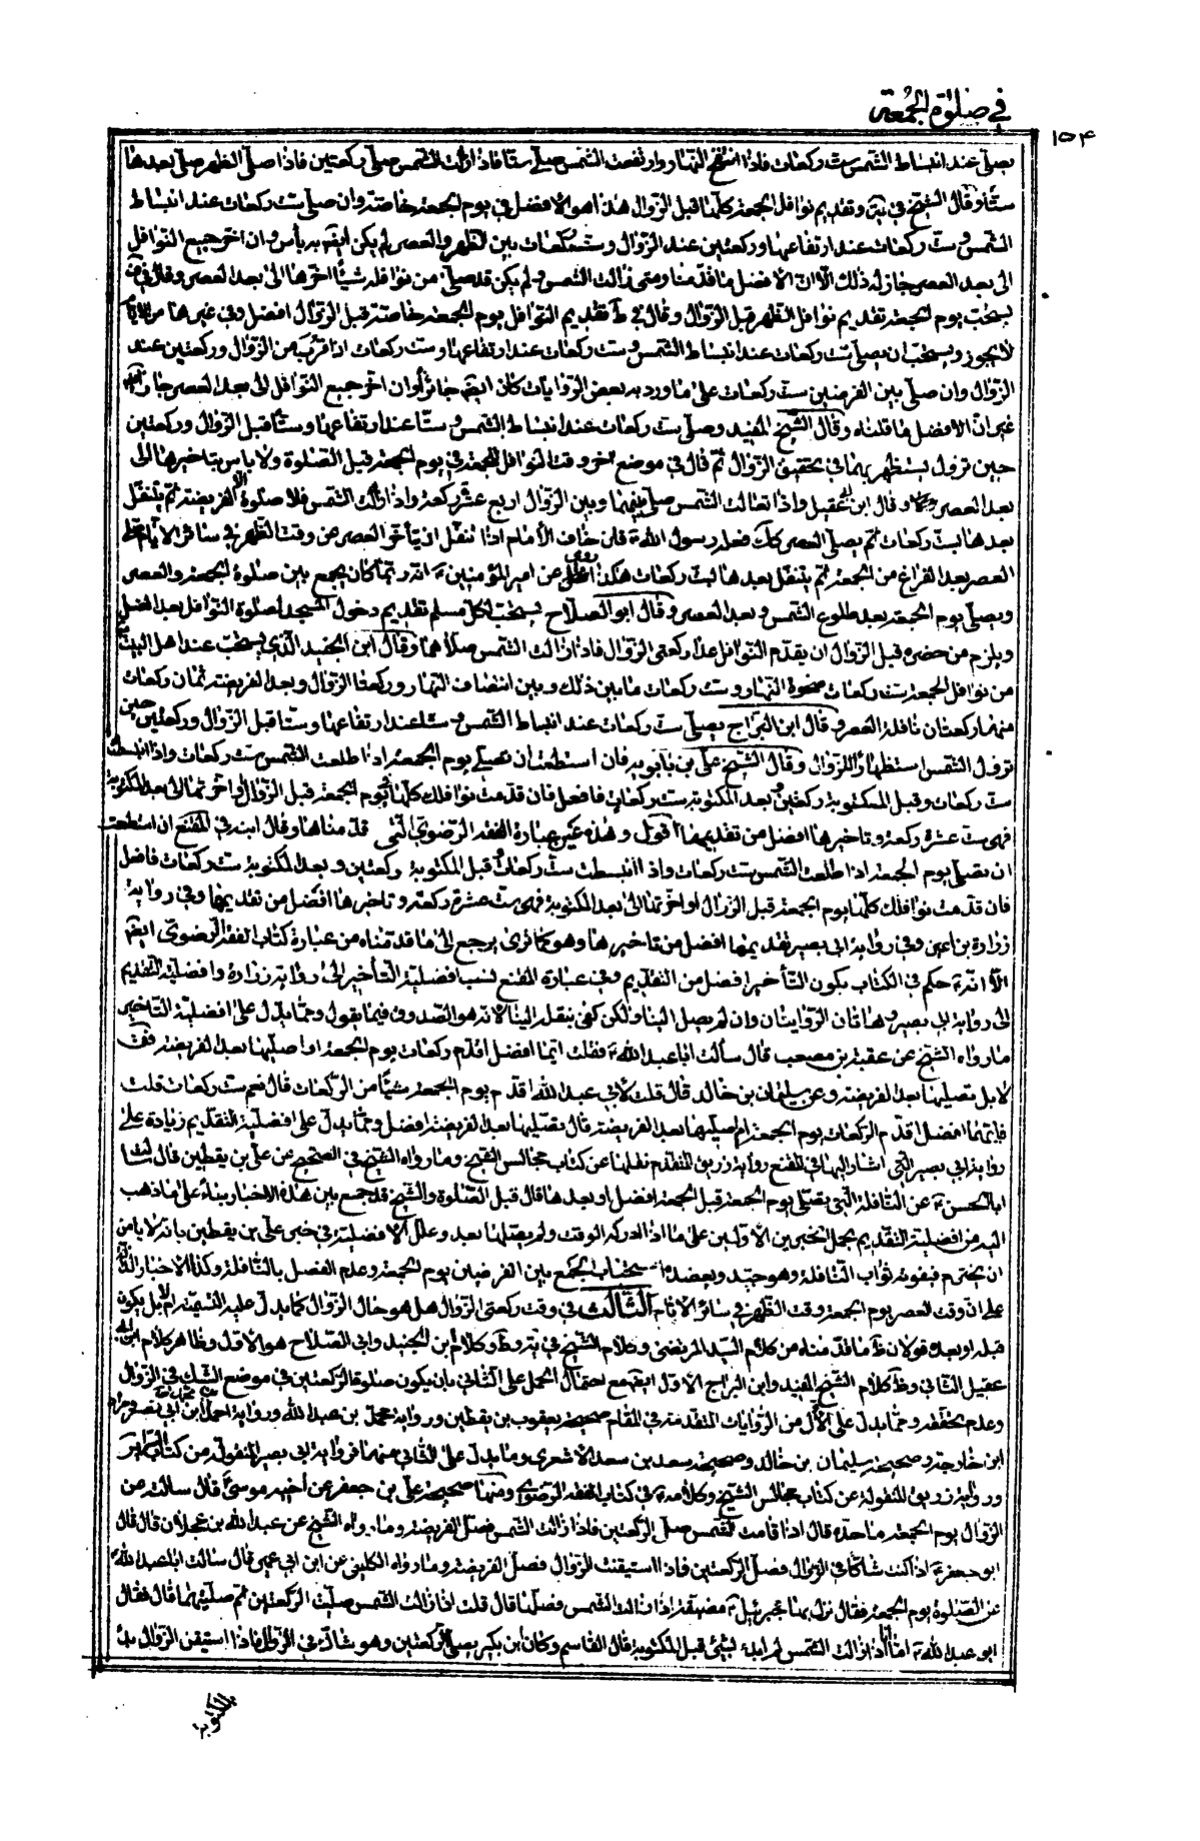 في صلوة الجمعة
١٥٤
يصلي عند انبساط الشمس ست ركعات فاذا انتفخ النهار وارتفعت الشمس صلى ستا فاذا زالت الشمس صلى ركعتين فاذا صلى الظهر صلى بعدها
ستا وقال الشيخ في يه وتقديم نوافل الجمعة كلها قبل الزوال هذا هو الافضل في يوم الجمعة خاصة وان صلى ست ركعات عند انبساط
الشمس وست ركعات عند ارتفاعها وركعتين عند الزوال وست ركعات بين الظهر والعصر لم يكن ايضا به باس وان اخر جميع النوافل
الى بعد العصر جاز له ذلك الا ان الافضل ما قدمنا ومتى زالت الشمس ولم يكن قد صلى من نوافله شيئا اخرها الى بعد العصر وقال في ف
يستحب يوم الجمعة تقديم نوافل الظهر قبل الزوال وقال في ط تقديم النوافل يوم الجمعة خاصة قبل الزوال افضل وفي غيرها من الايام
لا يجوز ويستحب ان يصلي ست ركعات عند انبساط الشمس وست ركعات عند ارتفاعها وست ركعات اذا قرب من الزوال وركعتين عند
الزوال وان صلى بين الفرضين ست ركعات على ما ورد به بعض الروايات كان ايضا جائزا وان اخر جميع النوافل الى بعد العصر جاز ايضا
غير ان الافضل ما قلناه وقال الشيخ المفيد وصلى ست ركعات عند انبساط الشمس وستا عند ارتفاعها وستا قبل الزوال وركعتين
حين تزول يستظهر بهما في تحقيق الزوال ثم قال في موضع اخر وقت النوافل للجمعة في يوم الجمعة قبل الصلوة ولا باس بتاخيرها الى
بعد العصر وقال ابن ابي عقيل واذا تعالت الشمس صلى بينها وبين الزوال اربع عشرة ركعة واذا زالت الشمس فلا صلوة الا الفريضة ثم يتنفل
بعدها بست ركعات ثم يصلي العصر كك فعله رسول الله ص فان خاف الامام اذا تنفل ان يتاخر العصر عن وقت الظهر في سائر الايام صلى
العصر بعد الفراغ من الجمعة ثم يتنفل بعدها بست ركعات هكذا روى عن امير المؤمنين ع انه ربما كان يجمع بين صلوة الجمعة والعصر
ويصلي يوم الجمعة بعد طلوع الشمس وبعد العصر وقال ابو الصلاح يستحب لكل مسلم تقديم دخول المسجد لصلوة النوافل بعد الغسل
ويلزم من حضره قبل الزوال ان يقدم النوافل عدا ركعتي الزوال فاذا زالت الشمس صلاهما وقال ابن الجنيد الذي يستحب عند اهل البيت ع
من نوافل الجمعة ست ركعات ضحوة النهار وست ركعات ما بين ذلك وبين انتصاف النهار وركعتا الزوال وبعد الفريضة ثمان ركعات
منها ركعتان نافلة العصر وقال ابن البراج يصلي ست ركعات عند انبساط الشمس وستا عند ارتفاعها وستا قبل الزوال وركعتين حين
تزول الشمس استظهارا للزوال وقال الشيخ علي بن بابويه فان استطعت ان تصلي يوم الجمعة اذا طلعت الشمس ست ركعات واذا انبسطت
ست ركعات وقبل المكتوبة ركعتين وبعد المكتوبة ست ركعات فافعل فان قدمت نوافلك كلها يوم الجمعة قبل الزوال او اخرتها الى بعد المكتوبة
فهي ست عشرة ركعة وتاخيرها افضل من تقديمها اقول وهذه عين عبارة الفقه الرضوي التي قدمناها وقال ابنه في المقنع ان استطعت
ان تصلي يوم الجمعة اذا طلعت الشمس ست ركعات واذا انبسطت ست ركعات وقبل المكتوبة ركعتين وبعد المكتوبة ست ركعات فافعل
فان قدمت نوافلك كلها يوم الجمعة قبل الزوال او اخرتها الى بعد المكتوبة فهي ست عشرة ركعة وتاخيرها افضل من تقديمها وفي رواية
زرارة بن اعين وفي رواية ابي بصير تقديمها افضل من تاخيرها وهو كما ترى يرجع الى ما قدمناه من عبارة كتاب الفقه الرضوي ايضا
الا انه ع حكم في الكتاب بكون التاخير افضل من التقديم وفي عبارة المقنع نسب افضلية التأخير الى رواية زرارة وافضلية التقديم
الى رواية ابي بصير وهاتان الروايتان وان لم يصل الينا ولكن كفى بنقله الينا لانه هو الصدوق فيما يقول ومما يدل على افضلية التاخير
ما رواه الشيخ عن عقبة بن مصعب قال سألت ابا عبد الله ع فقلت ايما افضل اقدم ركعات يوم الجمعة او اصليها بعد الفريضة فقال
لا بل تصليها بعد الفريضة وعن سليمان بن خالد قال قلت لابي عبد الله ع اقدم يوم الجمعة شيئا من الركعات قال نعم ست ركعات قلت
فايهما افضل اقدم الركعات يوم الجمعة ام اصليها بعد الفريضة قال تصليها بعد الفريضة افضل ومما يدل على افضلية التقديم زيادة على
رواية ابي بصير التي اشار اليها في المقنع رواية زريق المتقدم نقلها عن كتاب مجالس الشيخ وما رواه الشيخ في الصحيح عن علي بن يقطين قال سالت
ابا الحسن ع عن النافلة التي تصلى يوم الجمعة قبل الجمعة افضل او بعدها قال قبل الصلوة والشيخ قد جمع بين هذه الاخبار بناء على ما ذهب
اليه من افضلية التقديم بحمل الخبرين الاولين على ما اذا ادركه الوقت ولم يصلها بعد وعلل الافضلية في خبر علي بن يقطين بانه لا يامن
ان يخترم فيفوته ثواب النافلة وهو جيد ويعضده استحباب الجمع بين الفرضين يوم الجمعة وعدم الفصل بالنافلة وكذا الاخبار الدالة
على ان وقت العصر يوم الجمعة وقت الظهر في سائر الايام الثالث في وقت ركعتي الزوال هل هو حال الزوال كما يدل عليه التسمية ام لا بل يكون
قبله او بعده قولان ظ ما قدمناه من كلام السيد المرتضى وكلام الشيخ في يه وط وكلام ابن الجنيد وابي الصلاح هو الاول وظاهر كلام ابن ابي
عقيل الثاني وظ كلام الشيخ المفيد وابن البراج الاول ايضا مع احتمال الحمل على الثاني بان يكون صلوة الركعتين في موضع الشك في الزوال
وعدم تحققه ومما يدل على الاول من الروايات المتقدمة في المقام صحيحة يعقوب بن يقطين ورواية محمد بن عبد الله ورواية احمد بن ابي نصر ومراد
ابن خارجة وصحيحة سليمان بن خالد وصحيحة سعد بن سعد الاشعري ومما يدل على الثاني منها رواية ابي بصير المنقولة من كتاب السرائر
ورواية زريق المنقولة عن كتاب مجالس الشيخ وكلامه ع في كتاب الفقه الرضوي ومنها صحيحة علي بن جعفر عن اخيه موسى ع قال سالته عن
الزوال يوم الجمعة ما حده قال اذا قامت الشمس صل الركعتين فاذا زالت الشمس فصل الفريضة وما رواه الشيخ عن عبد الله بن عجلان قال قال
ابو جعفر ع اذا كنت شاكا في الزوال فصل الركعتين فاذا استيقنت الزوال فصل الفريضة وما رواه الكليني عن ابن ابي عمير قال سالت ابا عبد الله ع
عن الصلوة يوم الجمعة فقال نزل بها جبرئيل ع مضيقة اذا زالت الشمس فصلها قال قلت اذا زالت الشمس صليت الركعتين ثم صليتها قال فقال
ابو عبد الله ع اما انا اذا زالت الشمس لم ابدء بشئ قبل المكتوبة قال القاسم وكان ابن بكير يصلي الركعتين وهو شاك في الزوال فاذا استيقن الزوال بدء
بالمكتوبة